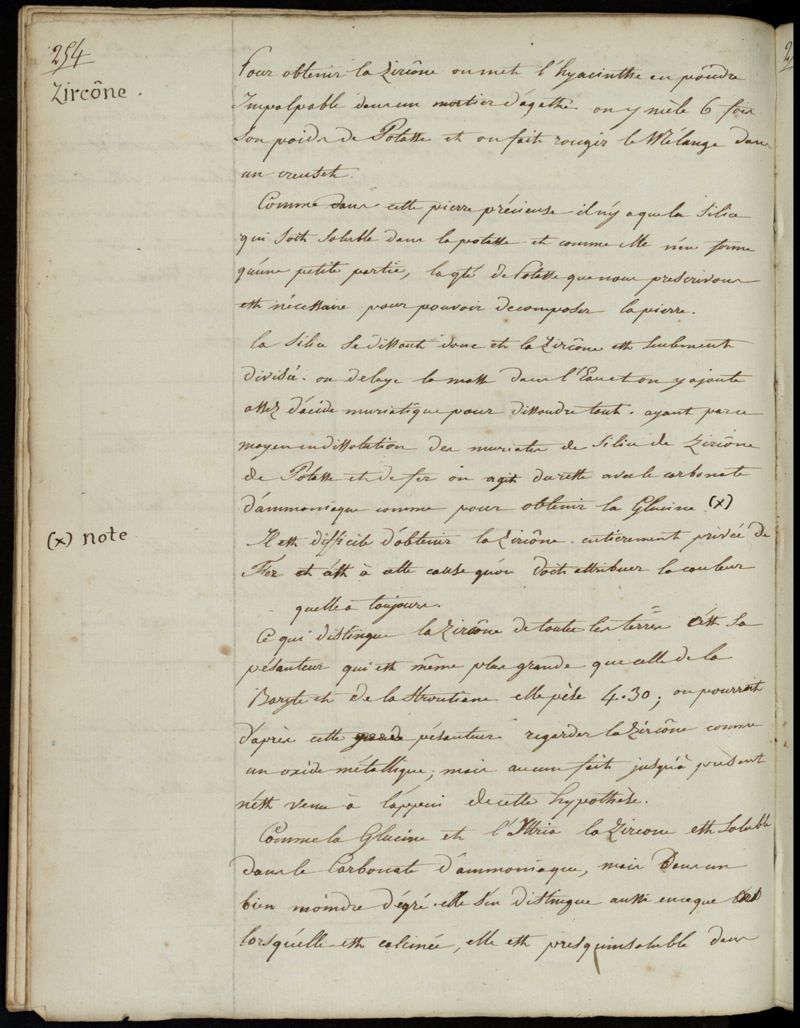 254
Zircône.
Pour obtenir la Zircône on met l'hyacinthe en poudre
Impalpable dans un mortier d'agathe on y mêle 6 fois
Son poids de Potasse et on fait rougir le Mélange dans
un creuset.
Comme dans cette pierre précieuse il n'y a que la Silice
qui soit soluble dans la potasse et comme elle n'en forme
qu'une petite partie, la qté de Potasse que nous prescrivons
est nécessaire pour pouvoir decomposer la pierre.
la Silice se dissout donc et la Zircône est seulement
divisée. on delaye la masse dans l'Eau et on y ajoute
assez d'acide muriatique pour dissoudre tout. ayant par ce
moyen en dissolution des muriates de Silice de Zircône
de Potasse et de fer on agit du reste avec le carbonate
d'ammoniaque comme pour obtenir la Glucine (x)
(x) note
Il est difficile d'obtenir la Zircône entièrement privée de
Fer et c'est à cette cause qu'on doit attribuer la couleur
quelle a toujours.
Ce qui distingue la Zircône de toutes les terres c'est sa
pésanteur qui est même plus grande que celle de la
Baryte et de la Strontiane elle pèse 4.30; on pourrait
d'après cette grande pésanteur regarder la Zircône comme
un oxide métallique; mais aucun fait jusqu'à présent
n'est venu à l'appui de cette hypothèse.
Comme la Glucine et l'Ittria la Zircone est soluble
dans le Carbonate d'ammoniaque, mais Dans un
bien moindre dégré. elle s'en distingue aussi en ce que
lorsqu'elle est calcinée, elle est presqu'insoluble dans